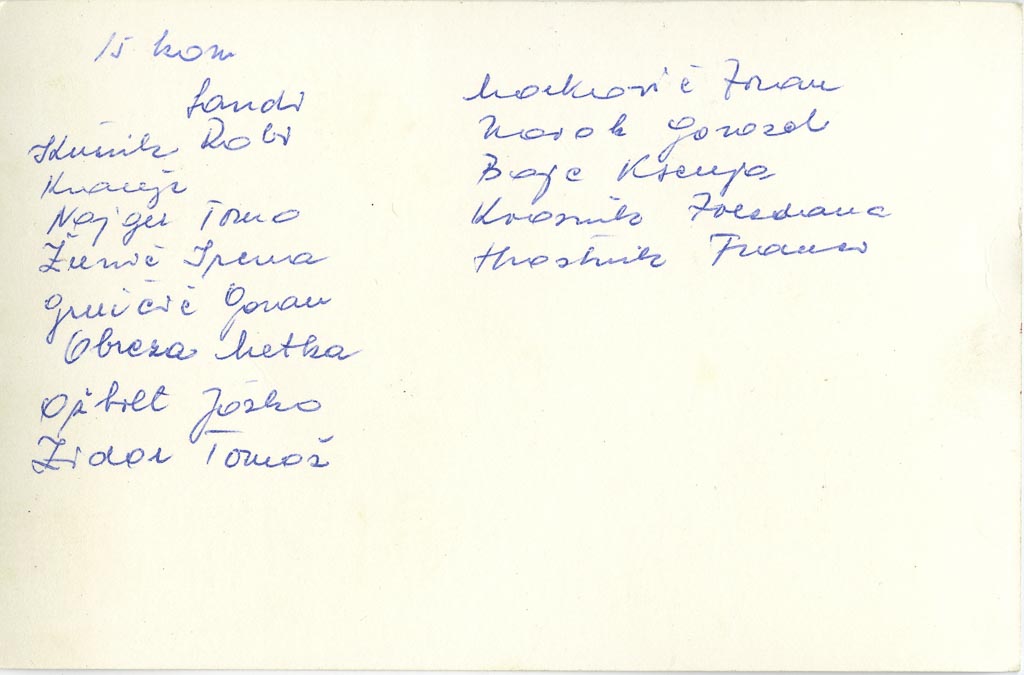 15 kom
Sandi
Kušnik Robi
Kranjc
Najger Tomo
Žunič Irena
Gruičić Goran
Obreza Metka
Ožbolt Joško
Židar Tomaž
Markovič Zoran
Novak Gorazd
Bajc Ksenja
Kvasnik Zvezdana
Hrastnik Franci